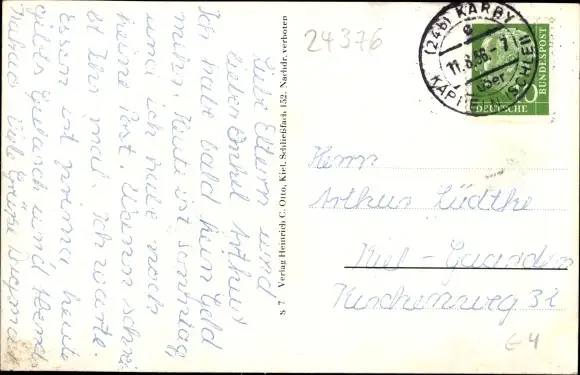 Liebe Eltern und
lieber Onkel Arthur
Ich habe bald kein Geld
mehr. Heute ist Sonntag,
und ich habe noch
keine Post. Wann schrei
bt Ihr mal. Ich warte.
Essen ist prima, heute
gibts und
Viele Grüße Dagmar
S 7 Verlag Heinrich C. Otto, Kiel, Schließfach, 152. Nachdr. verboten
24376
(24b) KARBY
11.8.56.-7
über
KAPPELN (SCHLEI)
10
DEUTSCHE
BUNDESPOST
Herrn
Arthur Lüdtke
Kiel-Gaarden
Kirchenweg 32